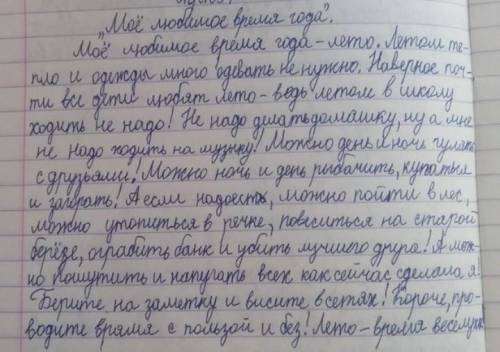 „Моё любимое время года".
Моё любимое время года - лето. Летом те-
пло и одежды много одевать не нужно. Наверное поч-
ти все дети любят лето - ведь летом в школу
ходить не надо! Не надо делать домашку, ну а мне
не надо ходить на музыку! Можно день и ночь гулять
с друзьями! Можно ночь и день рыбачить, купаться
и загорать! А если надоесть, можно пойти в лес,
можно утопиться в речке, повеситься на старой
берёзе, ограбить банк и убить лучшего друга! А мож-
но пошутить и напугать всех как сейчас сделала я!
Берите на заметку и висите в сетях! Короче, про-
водите врямя с пользой и без! Лето - время веселухи!